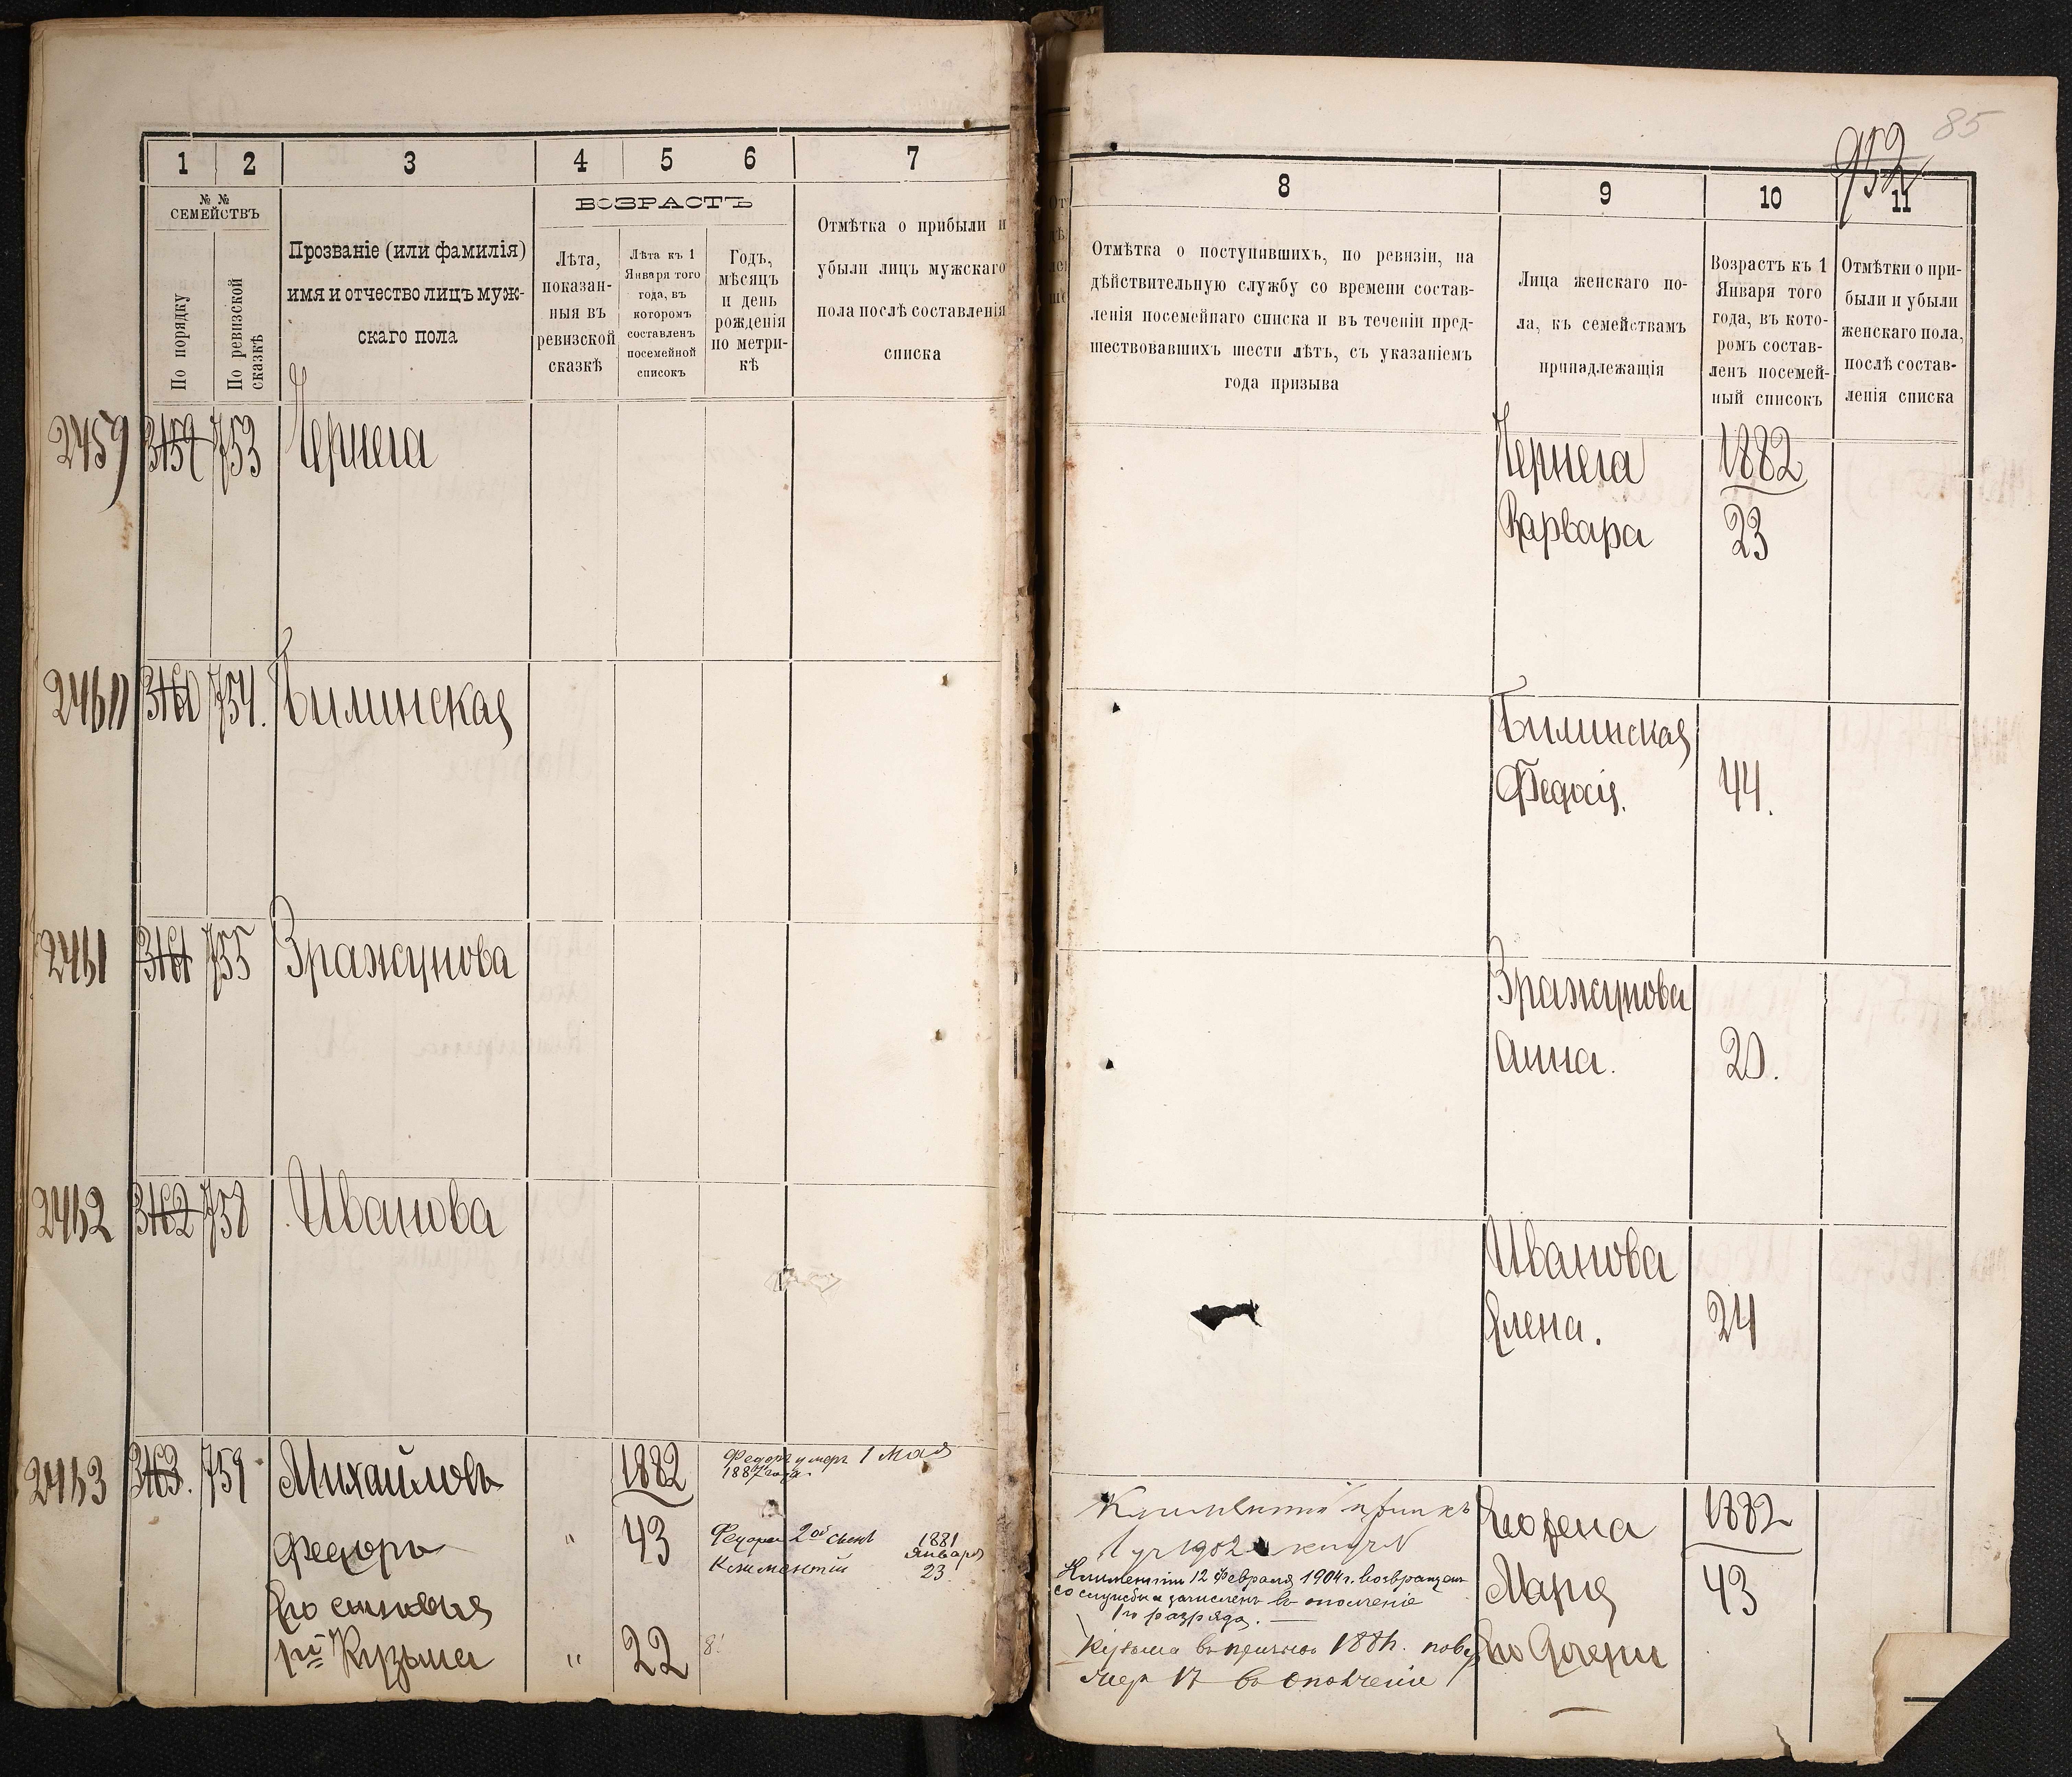 1 2 3 4 5 6 7
№ №
СЕМЕЙСТВЪ
По порядку
По ревизской
сказкѣ
Прозваніе (или фамилія)
имя и отчество лицъ муж-
скаго пола
ВОЗРАСТЪ
Лѣта,
показан-
ныя въ
ревизской
сказкѣ
Лѣта къ 1
Января того
года, въ
которомъ
составленъ
посемейной
списокъ
Годъ,
мѣсяцъ
и день
рожденія
по метри-
кѣ
Отмѣтка о прибыли и
убыли лицъ мужскаго
пола послѣ составленія
списка
2459 3159 753 Чернега
2460 3160 754. Билинская
2461 3161 755 Зражунова
2462 3162 758 Иванова
2463 3163. 759 Михайловъ 1882
Федоръ умеръ 1 Мая
1887 года.
Федоръ " 43
Федора 2ой сынъ 1881
Климентій Января
23
Его сыновья
1й Кузьма " 22
85
952
8 9 10 11
Отмѣтка о поступившихъ, по ревизіи, на
дѣйствительную службу со времени состав-
ленія посемейнаго списка и въ теченіи пред-
шествовавшихъ шести лѣтъ, съ указаніемъ
года призыва
Лица женскаго по-
ла, къ семействамъ
принадлежащія
Возрастъ къ 1
Января того
года, въ кото-
ромъ состав-
ленъ посемей-
ный списокъ
Отмѣтки о при-
были и убыли
женскаго пола,
послѣ состав-
ленія списка
Чернега 1882
Варвара 23
Билинская
Федосія. 44.
Зражунова
Анна. 20.
Иванова
Елена. 24
Климентій
1902
Климентій 12 Февраля 1904 г. возвращенъ
со службы и зачисленъ въ ополченіе
1го разряда.
Кузьма въ призывъ
17 въ ополченіе
Его жена 1882
Марія 43
Его дочери